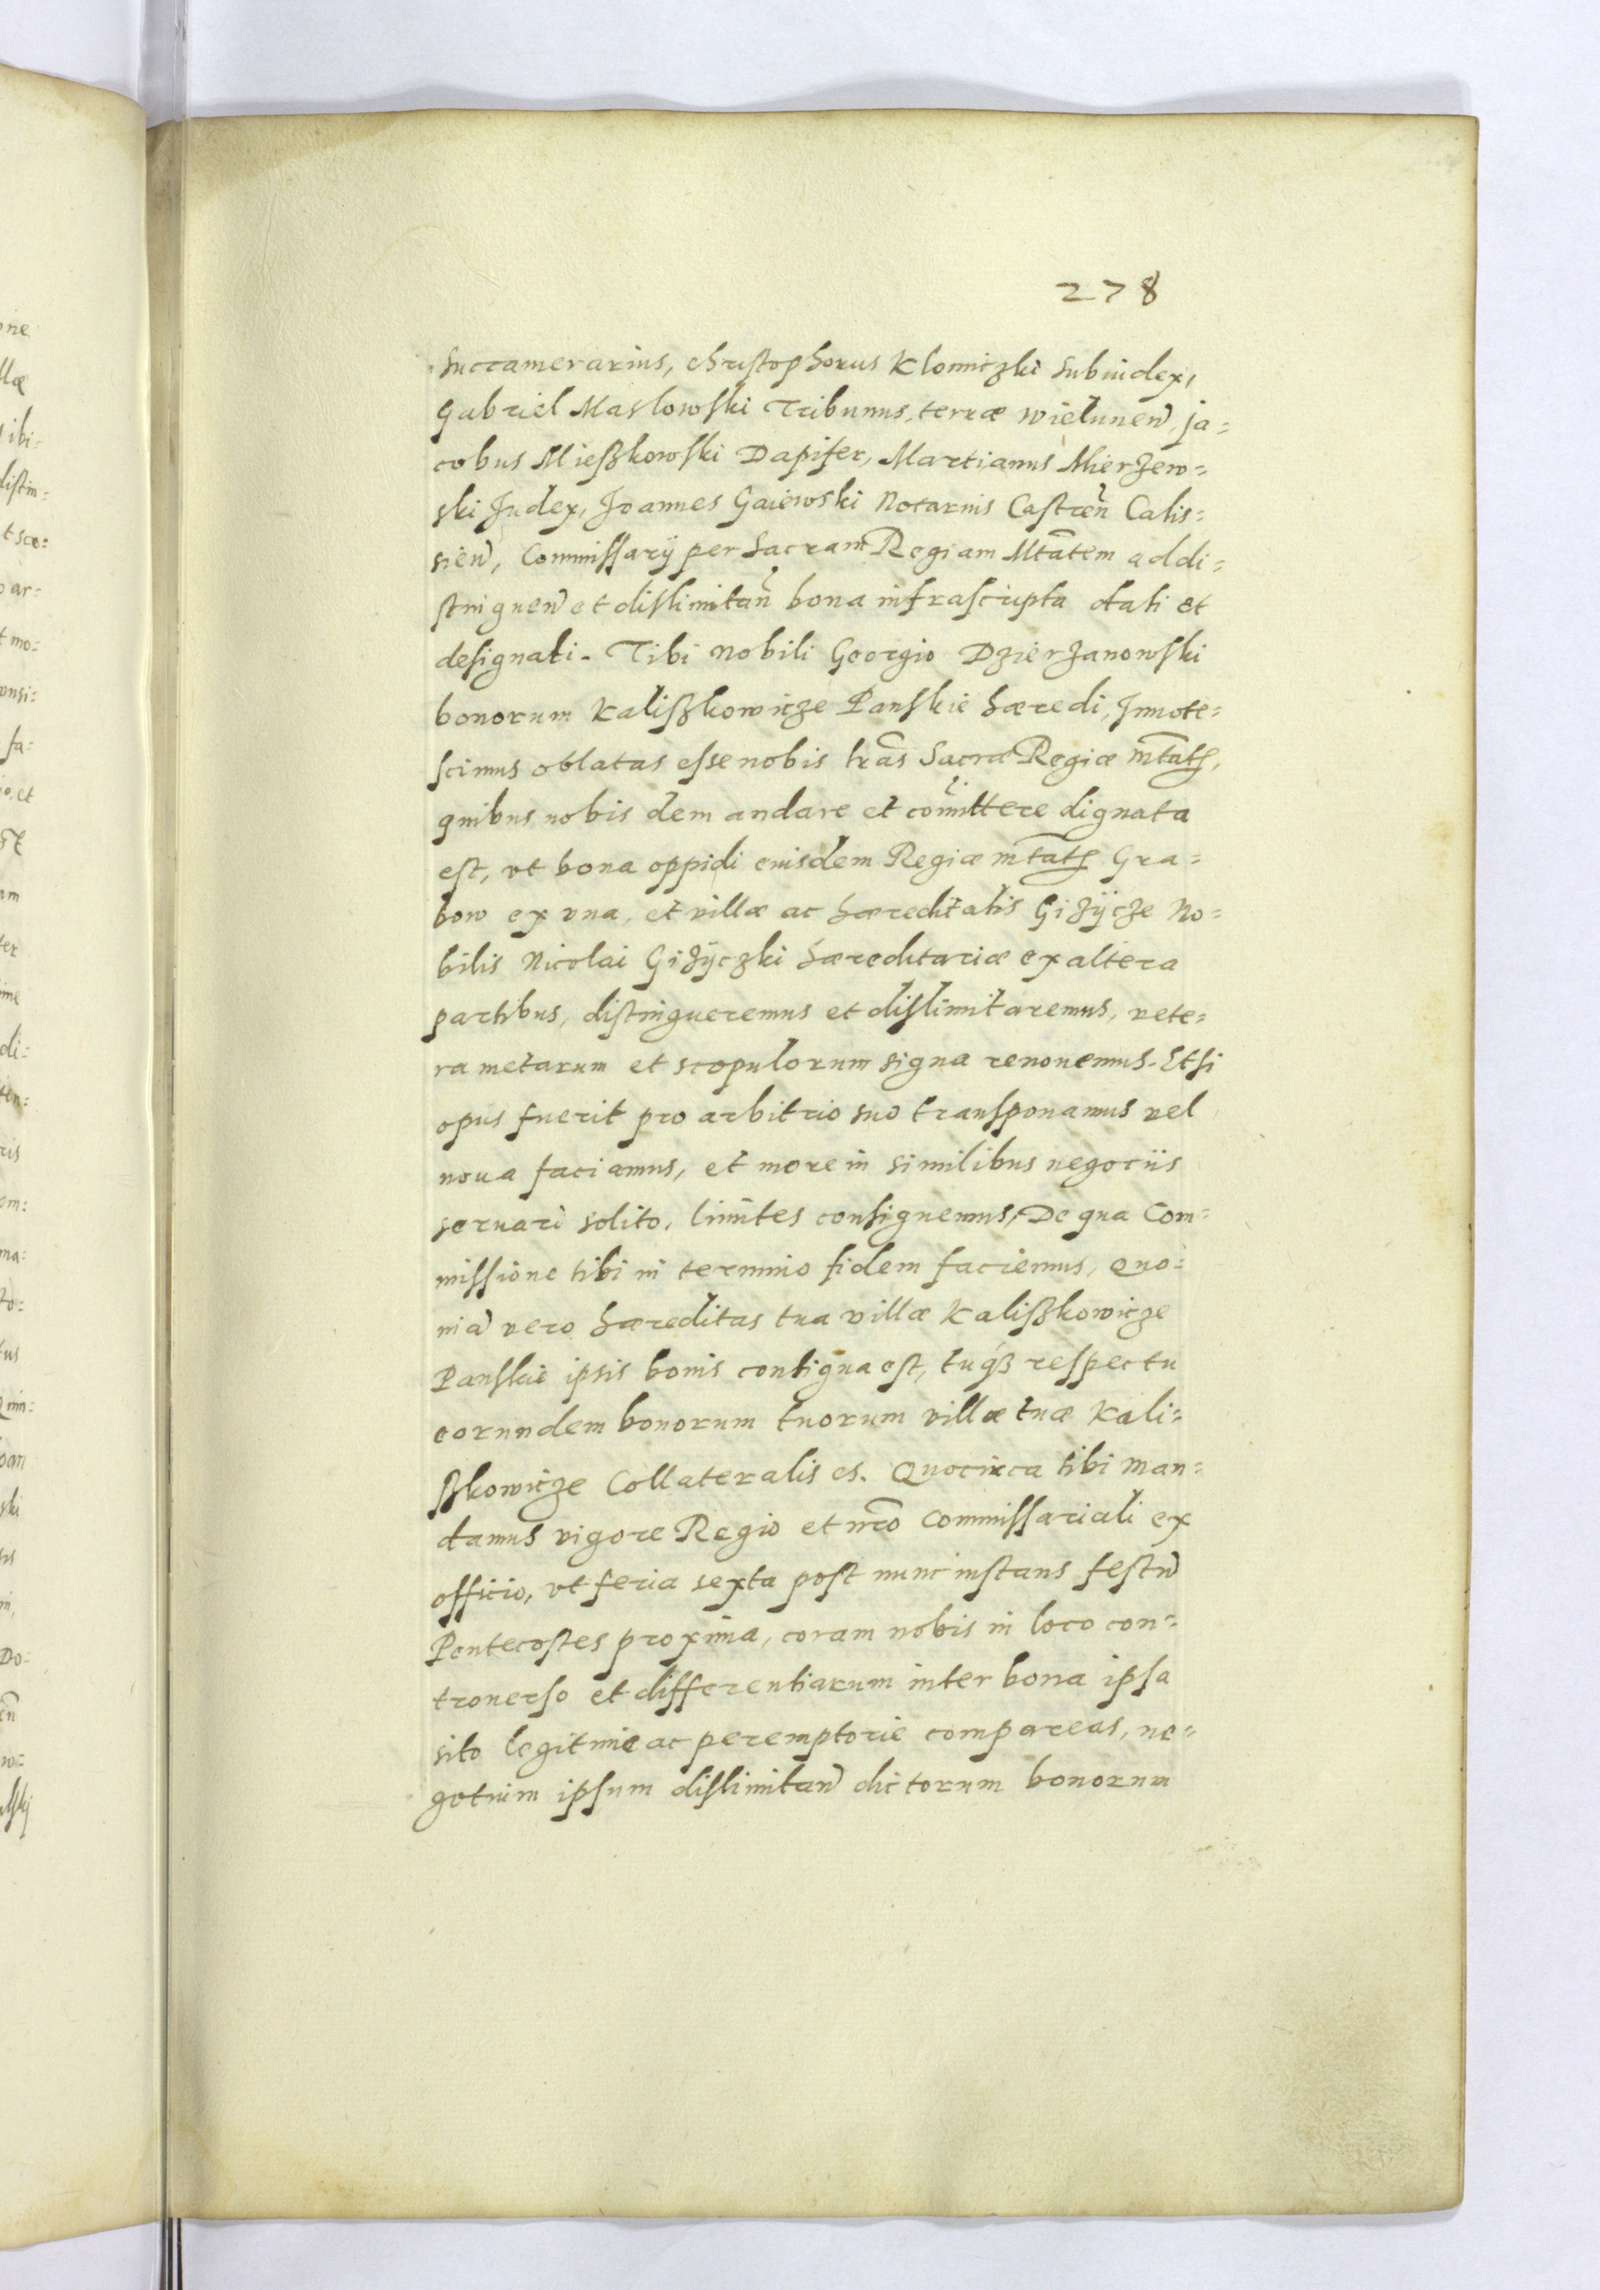 278
Succamerarius, Christophorus Klomiczki Subiudex,
Gabriel Maslowski Tribunus, terræ Wielunen̄, ja=
cobus Mießkowski Dapifer, Martianus Mierzew=
ski Judex, Joannes Gaiewski Notarius Castren̄ Calis=
sien̄, Commissarÿ per Sacram Regiam Mtātem ad di=
stinguen̄ et dislimitan̄ bona infrascripta dati et
designati. Tibi Nobili Georgio Dzierzanowski
bonorum Kalißkowicze Panskie hæredi, Innote=
scimus oblatas esse nobis lrās Sacræ Regiæ mtātis,
quibus nobis demandare et com̄ittere dignata
est, vt bona oppidi eiusdem Regiæ mtātis Gra=
bow ex vna, et villæ ac hæreditatis Gizÿcze No=
bilis Nicolai Gizÿczki hæreditariæ ex altera
partibus, distingueremus et dislimitaremus, vete=
ra metarum et scopulorum signa renouemus. Et si
opus fuerit pro arbitrio suo transponamus vel
noua faciamus, et more in similibus negociis
seruari solito, limites consignemus, De qua Com=
missione tibi in termino fidem faciemus, Quo=
niā vero hæreditas tua villæ Kalißkowicze
Panskie ipsis bonis contigua est, tuqȝ respectu
eorundem bonorum tuorum villæ tuæ Kali=
ßkowicze Collateralis es. Quocirca tibi man=
damus vigore Regio et nr̄o Commissariali ex
officio, vt feria sexta post nunc instans festū
Pentecostes proxima, coram nobis in loco con=
trouerso et differentiarum inter bona ipsa
sito legitime ac peremptorie compareas, ne=
gotium ipsum dislimitan̄ dictorum bonorum